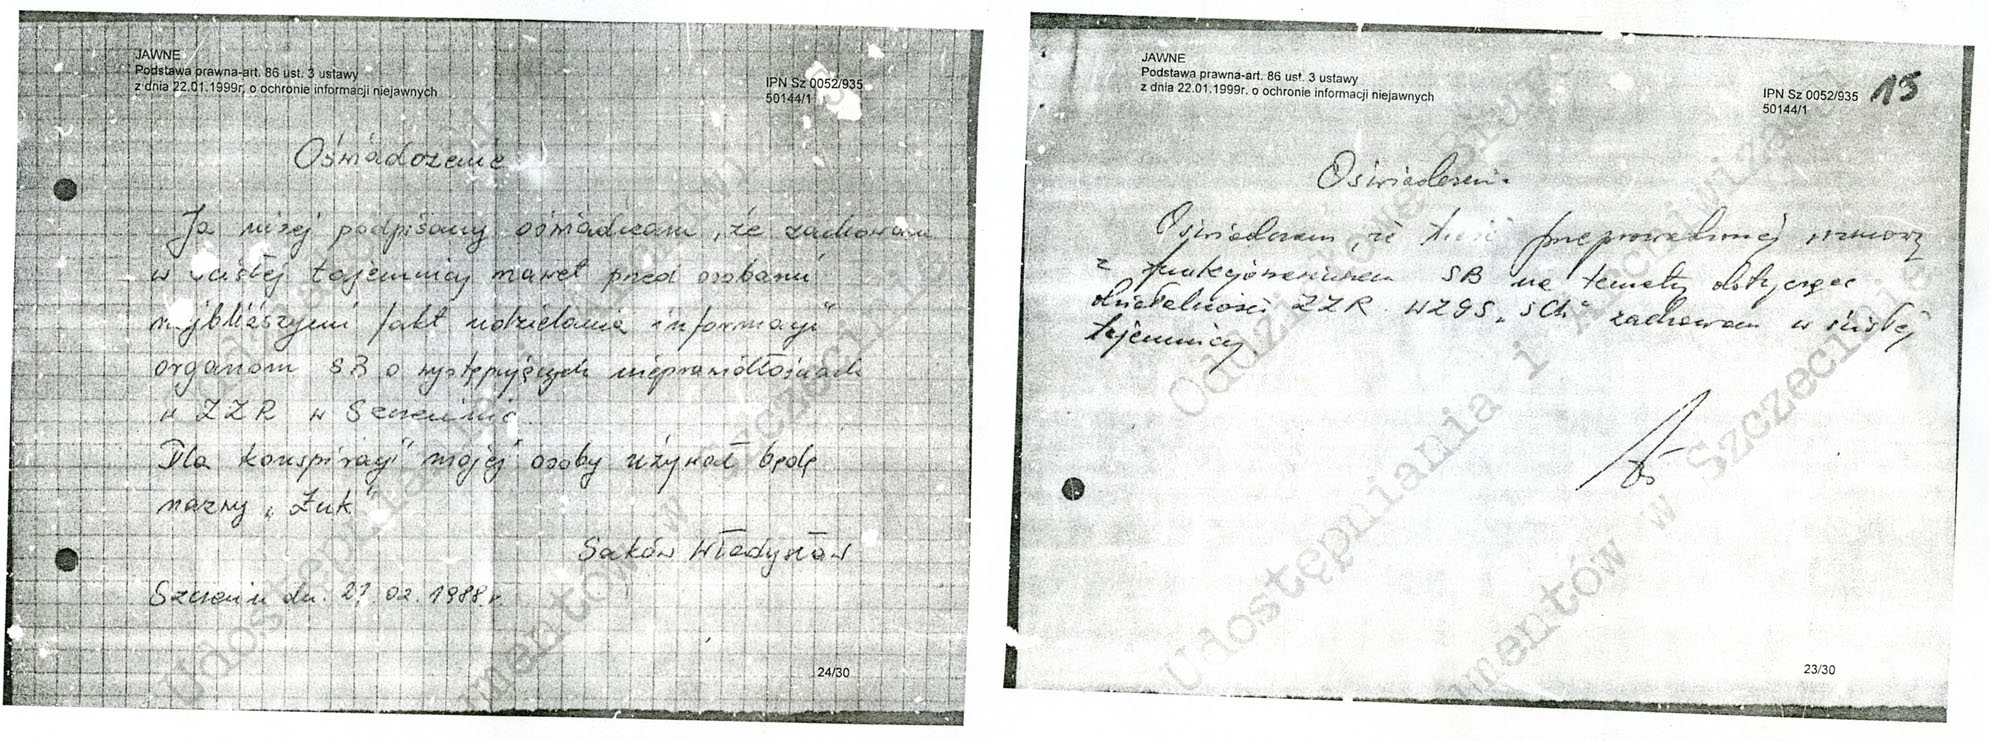 JAWNE
Podstawa prawna-art. 86 ust. 3 ustawy
z dnia 22.01.1999r. o ochronie informacji niejawnych
IPN Sz 0052/935
50144/1
Oświadczenie
Ja niżej podpisany oświadczam, że zachowam
w ścisłej tajemnicy nawet przed osobami
najbliższymi fakt udzielania informacji
organom SB o występujących nieprawidłościach
w ZZR w Szczecinie.
Dla konspiracji mojej osoby używał będę
nazwy "Żuk"
Saków Władysław
Szczecin dn. 27.02.1988 r.
24/30
JAWNE
Podstawa prawna-art. 86 ust. 3 ustawy
z dnia 22.01.1999r. o ochronie informacji niejawnych
IPN Sz 0052/935
50144/1
Oświadczenie
Oświadczam, że treść przeprowadzonej rozmowy
z funkcjonariuszem SB na tematy dotyczące
działalności ZZR WZGS "SCh" zachowam w ścisłej
tajemnicy
23/30
Udostępniania i Archiwizacji
Dokumentów w Szczecinie